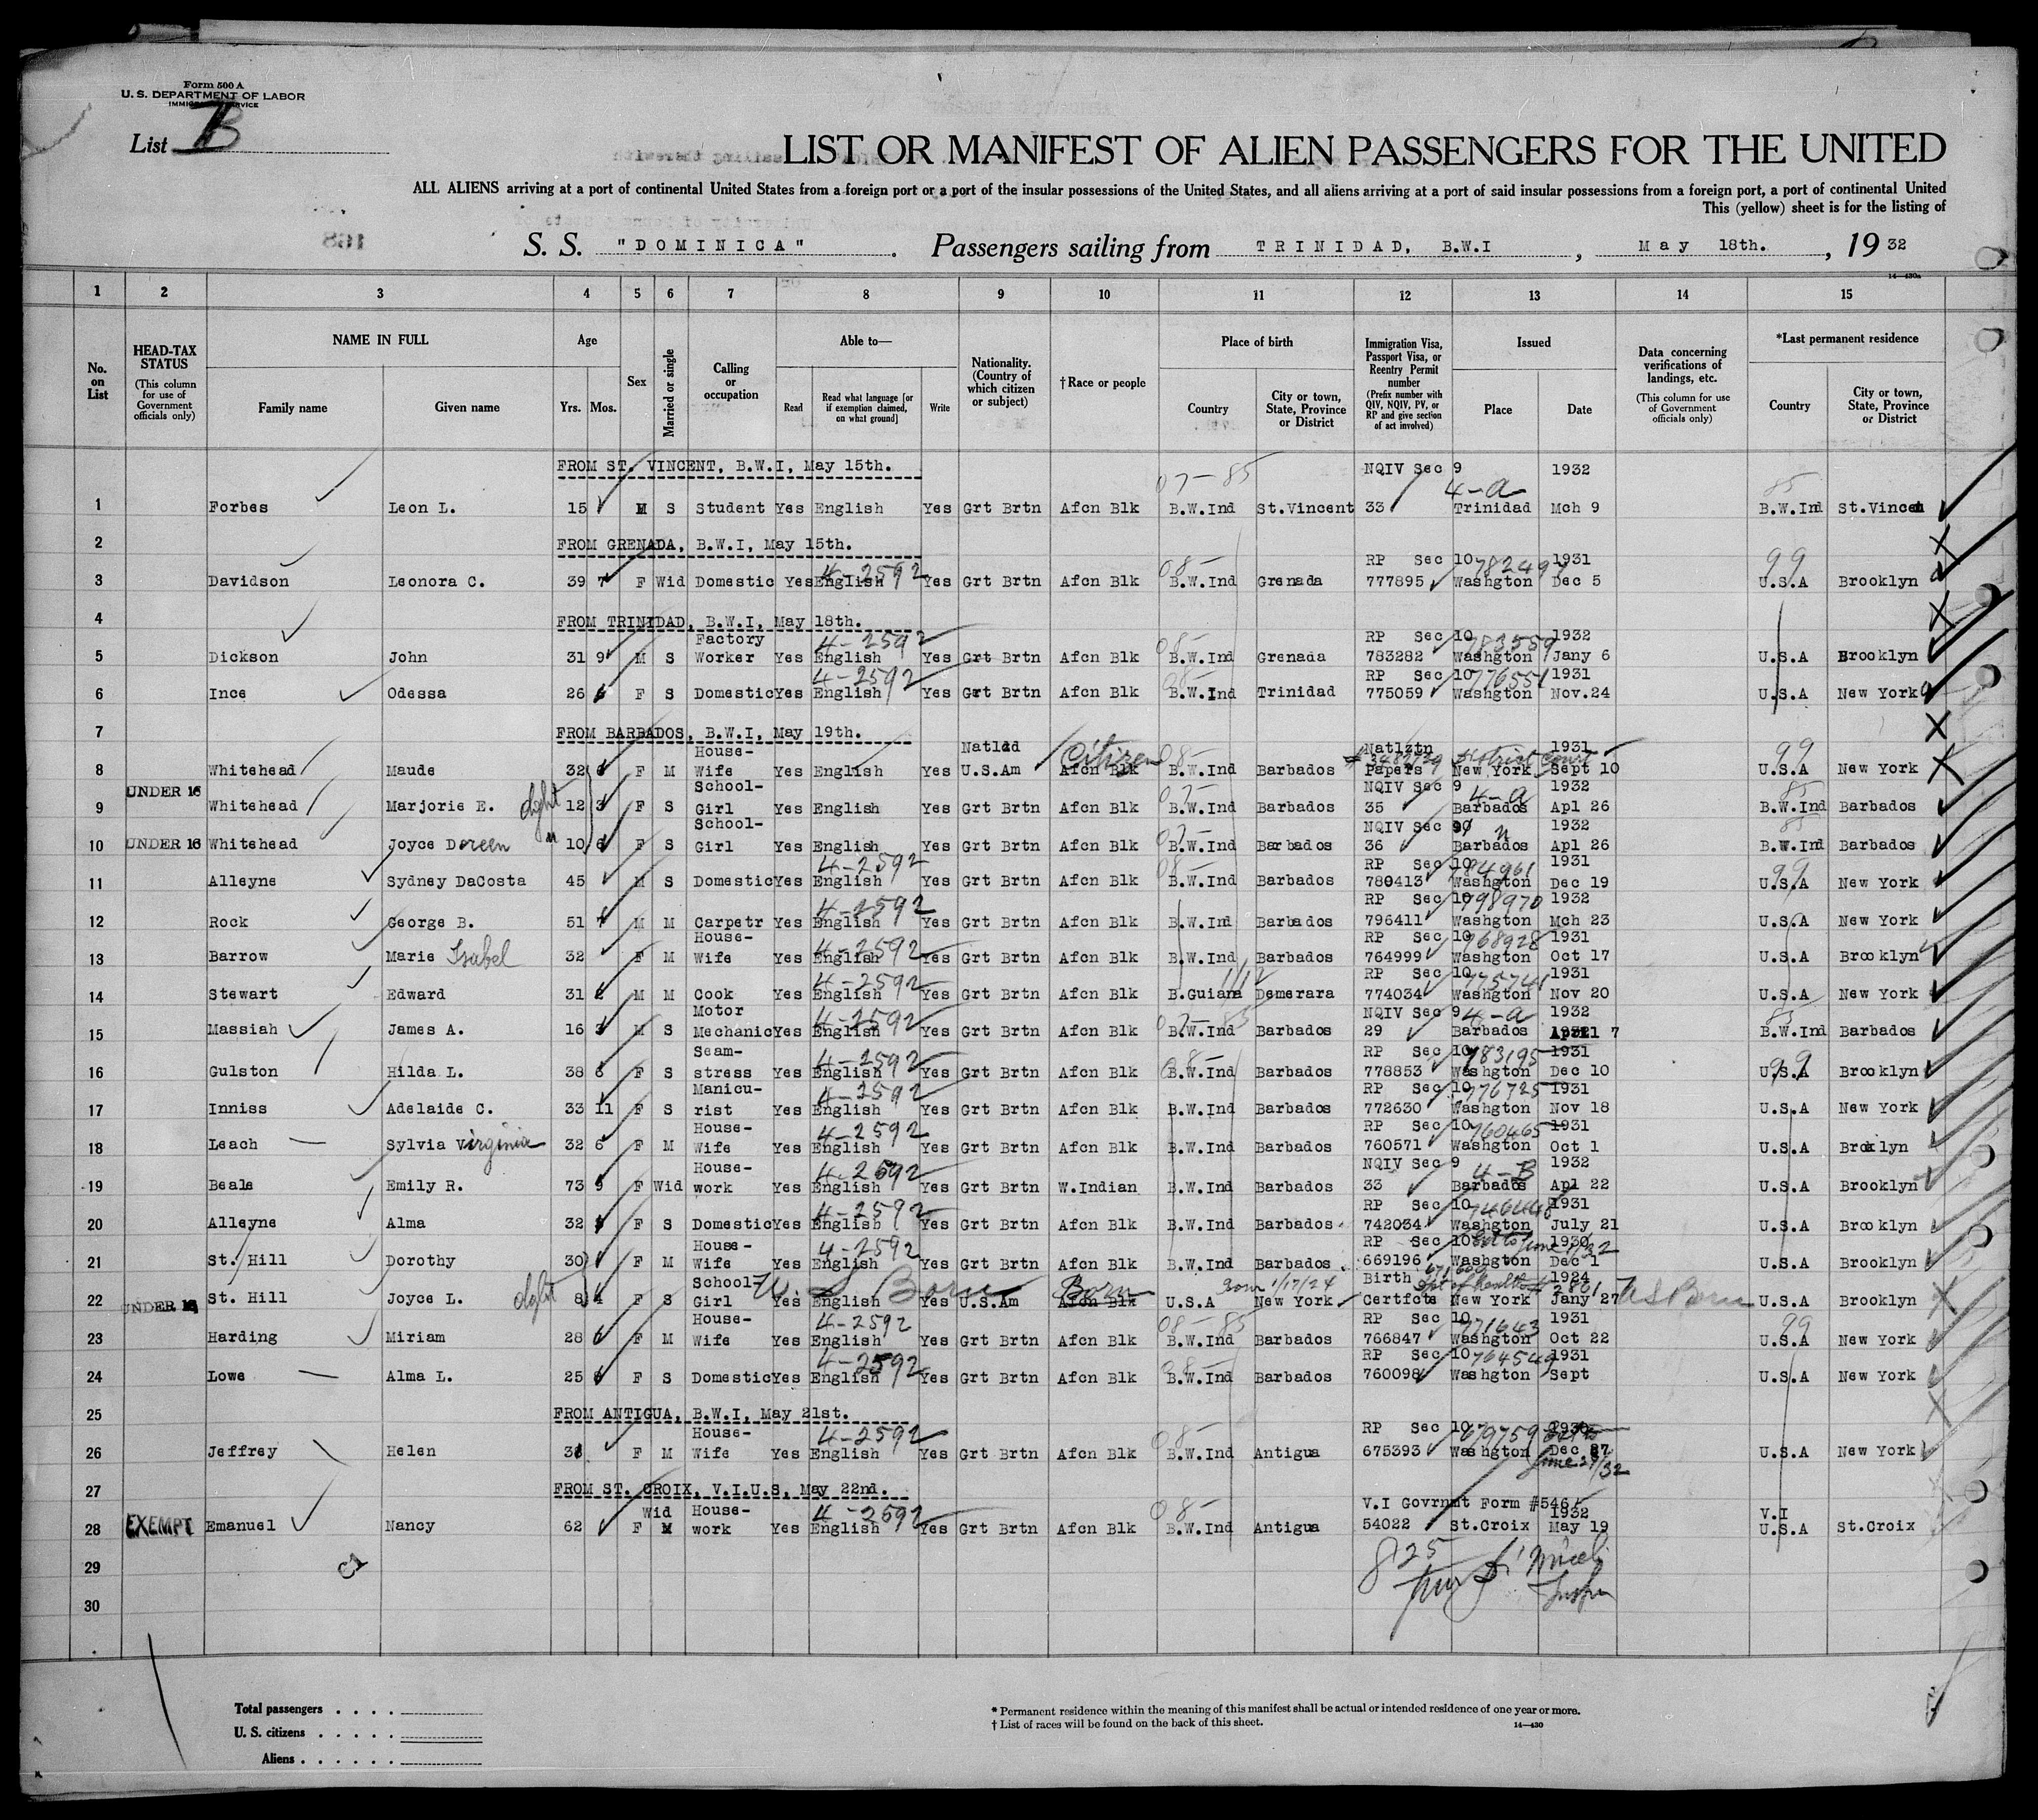 Form 500 A
U. S. DEPARTMENT OF LABOR
List B
LIST OR MANIFEST OF ALIEN PASSENGERS FOR THE UNITED
ALL ALIENS arriving at a port of continental United States from a foreign port or a port of the insular possessions of the United States, and all aliens arriving at a port of said insular possessions from a foreign port, a port of continental United
This (yellow) sheet is for the listing of
S. S. "DOMINICA". Passengers sailing from TRINIDAD, B.W.I, May 18th., 19 32
1 2 3 4 5 6 7 8 9 10 11 12 13 14 15
No. on List
HEAD-TAX STATUS (This column for use of Government officials only)
NAME IN FULL
Family name
Given name
Age
Yrs. Mos.
Sex
Married or single
Calling or occupation
Able to—
Read
Read what language [or if exemption claimed, on what ground]
Write
Nationality. (Country of which citizen or subject)
†Race or people
Place of birth
Country
City or town, State, Province or District
Immigration Visa, Passport Visa, or Reentry Permit number (Prefix number with QIV, NQIV, PV, or RP and give section of act involved)
Issued
Place
Date
Data concerning verifications of landings, etc. (This column for use of Government officials only)
*Last permanent residence
Country
City or town, State, Province or District
FROM ST. VINCENT, B.W.I, May 15th. NQIV Sec 9 1932
07-85 4-a 85
1 Forbes Leon L. 15 M S Student Yes English Yes Grt Brtn Afcn Blk B.W.Ind St.Vincent 33 Trinidad Mch 9 B.W.Ind St.Vincen
2 FROM GRENADA, B.W.I, May 15th.
4-2592 08- RP Sec 10 1931 99
3 Davidson Leonora C. 39 7 F Wid Domestic Yes English Yes Grt Brtn Afcn Blk B.W.Ind Grenada 777895 Washgton Dec 5 U.S.A Brooklyn
4 FROM TRINIDAD, B.W.I, May 18th.
Factory 4-2592 08- RP Sec 10 783559 1932
5 Dickson John 31 9 M S Worker Yes English Yes Grt Brtn Afcn Blk B.W.Ind Grenada 783282 Washgton Jany 6 U.S.A Brooklyn
4-2592 08- RP Sec 10 776551 1931
6 Ince Odessa 26 6 F S Domestic Yes English Yes Grt Brtn Afcn Blk B.W.Ind Trinidad 775059 Washgton Nov.24 U.S.A New York
7 FROM BARBADOS, B.W.I, May 19th.
House- Natldd Citizen 08- Natlztn District Court 1931 99
8 Whitehead Maude 32 6 F M Wife Yes English Yes U.S.Am Afcn Blk B.W.Ind Barbados Papers New York Sept 10 U.S.A New York
UNDER 16 School- 07- NQIV Sec 9 4-a 1932 85
9 Whitehead Marjorie E. dght 12 3 F S Girl Yes English Yes Grt Brtn Afcn Blk B.W.Ind Barbados 35 Barbados Apl 26 B.W.Ind Barbados
School- 07- NQIV Sec 9 " 1932 85
10 UNDER 16 Whitehead Joyce Doreen " 10 6 F S Girl Yes English Yes Grt Brtn Afcn Blk B.W.Ind Barbados 36 Barbados Apl 26 B.W.Ind Barbados
4-2592 08- RP Sec 10 784961 1931 99
11 Alleyne Sydney DaCosta 45 M S Domestic Yes English Yes Grt Brtn Afcn Blk B.W.Ind Barbados 780413 Washgton Dec 19 U.S.A New York
4-2592 RP Sec 10 798970 1932
12 Rock George B. 51 7 M M Carpetr Yes English Yes Grt Brtn Afcn Blk B.W.Ind Barbados 796411 Washgton Mch 23 U.S.A New York
House- 4-2592 RP Sec 10 768928 1931
13 Barrow Marie Isabel 32 F M Wife Yes English Yes Grt Brtn Afcn Blk B.W.Ind Barbados 764999 Washgton Oct 17 U.S.A Brooklyn
4-2592 RP Sec 10 775741 1931
14 Stewart Edward 31 M M Cook Yes English Yes Grt Brtn Afcn Blk B.Guiana Demerara 774034 Washgton Nov 20 U.S.A New York
Motor 4-2592 NQIV Sec 9 4-a 1932 85
15 Massiah James A. 16 3 M S Mechanic Yes English Yes Grt Brtn Afcn Blk B.W.Ind Barbados 29 Barbados April 7 B.W.Ind Barbados
Seam- 4-2592 08- RP Sec 10 783195 1931 99
16 Gulston Hilda L. 38 6 F S stress Yes English Yes Grt Brtn Afcn Blk B.W.Ind Barbados 778853 Washgton Dec 10 U.S.A Brooklyn
Manicu- 4-2592 RP Sec 10 776725 1931
17 Inniss Adelaide C. 33 11 F S rist Yes English Yes Grt Brtn Afcn Blk B.W.Ind Barbados 772630 Washgton Nov 18 U.S.A New York
House- 4-2592 RP Sec 10 760465 1931
18 Leach Sylvia Virginia 32 6 F M Wife Yes English Yes Grt Brtn Afcn Blk B.W.Ind Barbados 760571 Washgton Oct 1 U.S.A Brooklyn
House- 4-2592 NQIV Sec 9 4-B 1932
19 Beale Emily R. 73 9 F Wid work Yes English Yes Grt Brtn W.Indian B.W.Ind Barbados 33 Barbados Apl 22 U.S.A Brooklyn
4-2592 RP Sec 10 1931
20 Alleyne Alma 32 F S Domestic Yes English Yes Grt Brtn Afcn Blk B.W.Ind Barbados 742034 Washgton July 21 U.S.A Brooklyn
House- 4-2592 RP Sec 10 1930
21 St. Hill Dorothy 30 F M Wife Yes English Yes Grt Brtn Afcn Blk B.W.Ind Barbados 669196 Washgton Dec 1 U.S.A Brooklyn
School- U. S Born Born Born 1/17/24 Birth Dpt of Health # 2801 1924 U S Born
22 UNDER 16 St. Hill Joyce L. dght 8 4 F S Girl Yes English Yes U.S.Am Afcn Blk U.S.A New York Certfcte New York Jany 27 U.S.A Brooklyn
House- 4-2592 08-85 RP Sec 10 771643 1931 99
23 Harding Miriam 28 6 F M Wife Yes English Yes Grt Brtn Afcn Blk B.W.Ind Barbados 766847 Washgton Oct 22 U.S.A New York
4-2592 RP Sec 10 764549 1931
24 Lowe Alma L. 25 F S Domestic Yes English Yes Grt Brtn Afcn Blk B.W.Ind Barbados 760098 Washgton Sept U.S.A New York
25 FROM ANTIGUA, B.W.I, May 21st.
House- 4-2592 08- RP Sec 10 679759 1930
26 Jeffrey Helen F M Wife Yes English Yes Grt Brtn Afcn Blk B.W.Ind Antigua 675393 Washgton Dec 27 U.S.A New York
27 FROM ST. CROIX, V.I.U.S, May 22nd.
Wid House- 4-2592 08- V.I Govrnmt Form #546 1932 V.I
28 EXEMPT Emanuel Nancy 62 F M work Yes English Yes Grt Brtn Afcn Blk B.W.Ind Antigua 54022 St.Croix May 19 U.S.A St.Croix
29
30
Total passengers
U. S. citizens
Aliens
* Permanent residence within the meaning of this manifest shall be actual or intended residence of one year or more.
† List of races will be found on the back of this sheet.
14—430